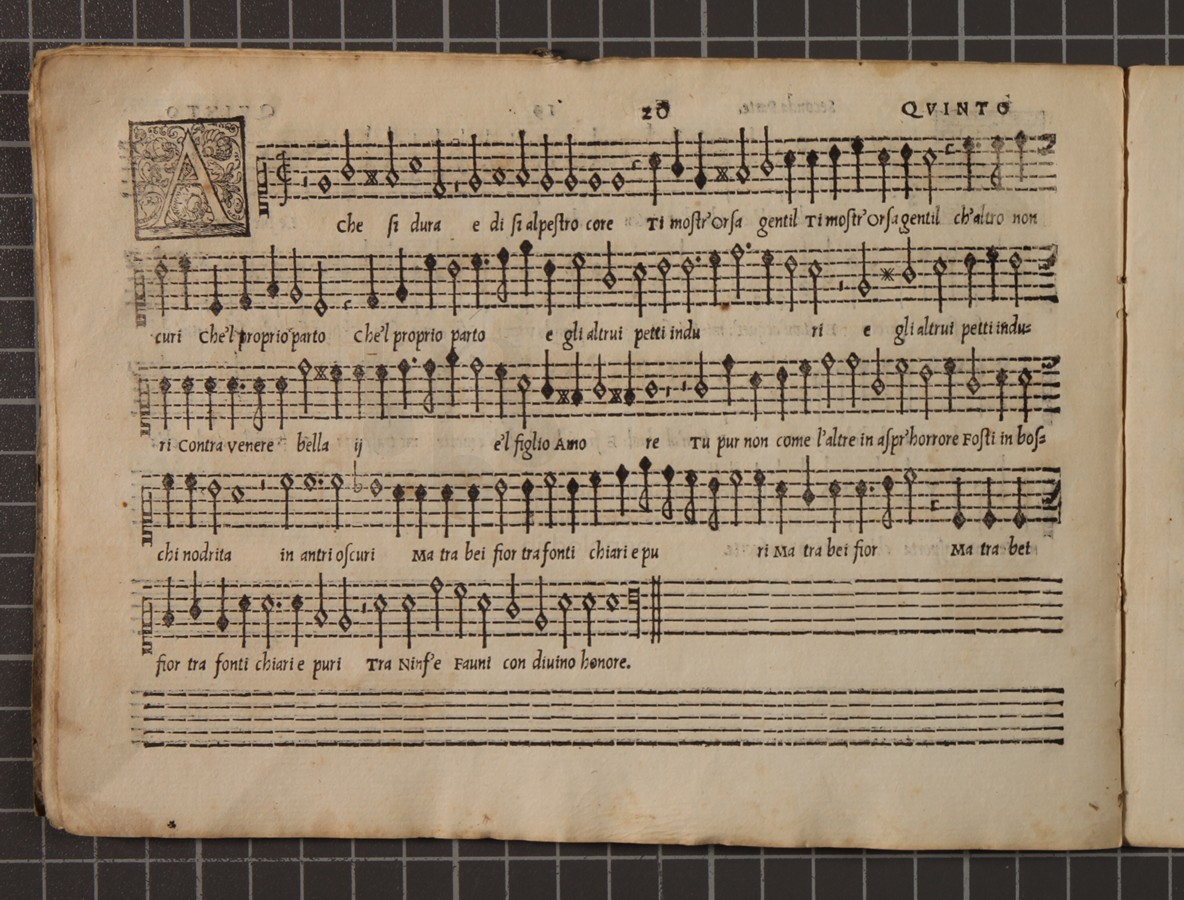 20 QVINTO
A Che si dura e di si alpestro core Ti mostr'Orsa gentil Ti mostr'Orsa gentil ch'altro non
curi Che'l proprio parto Che'l proprio parto e gli altrui petti indu ri e gli altrui petti indu=
ri Contra Venere bella ij e'l figlio Amo re Tu pur non come l'altre in aspr'horrore Fosti in bos=
chi nodrita in antri oscuri Ma tra bei fior tra fonti chiari e pu ri Ma tra bei fior Ma tra bei
fior tra fonti chiari e puri Tra Ninf'e Fauni con diuino honore.